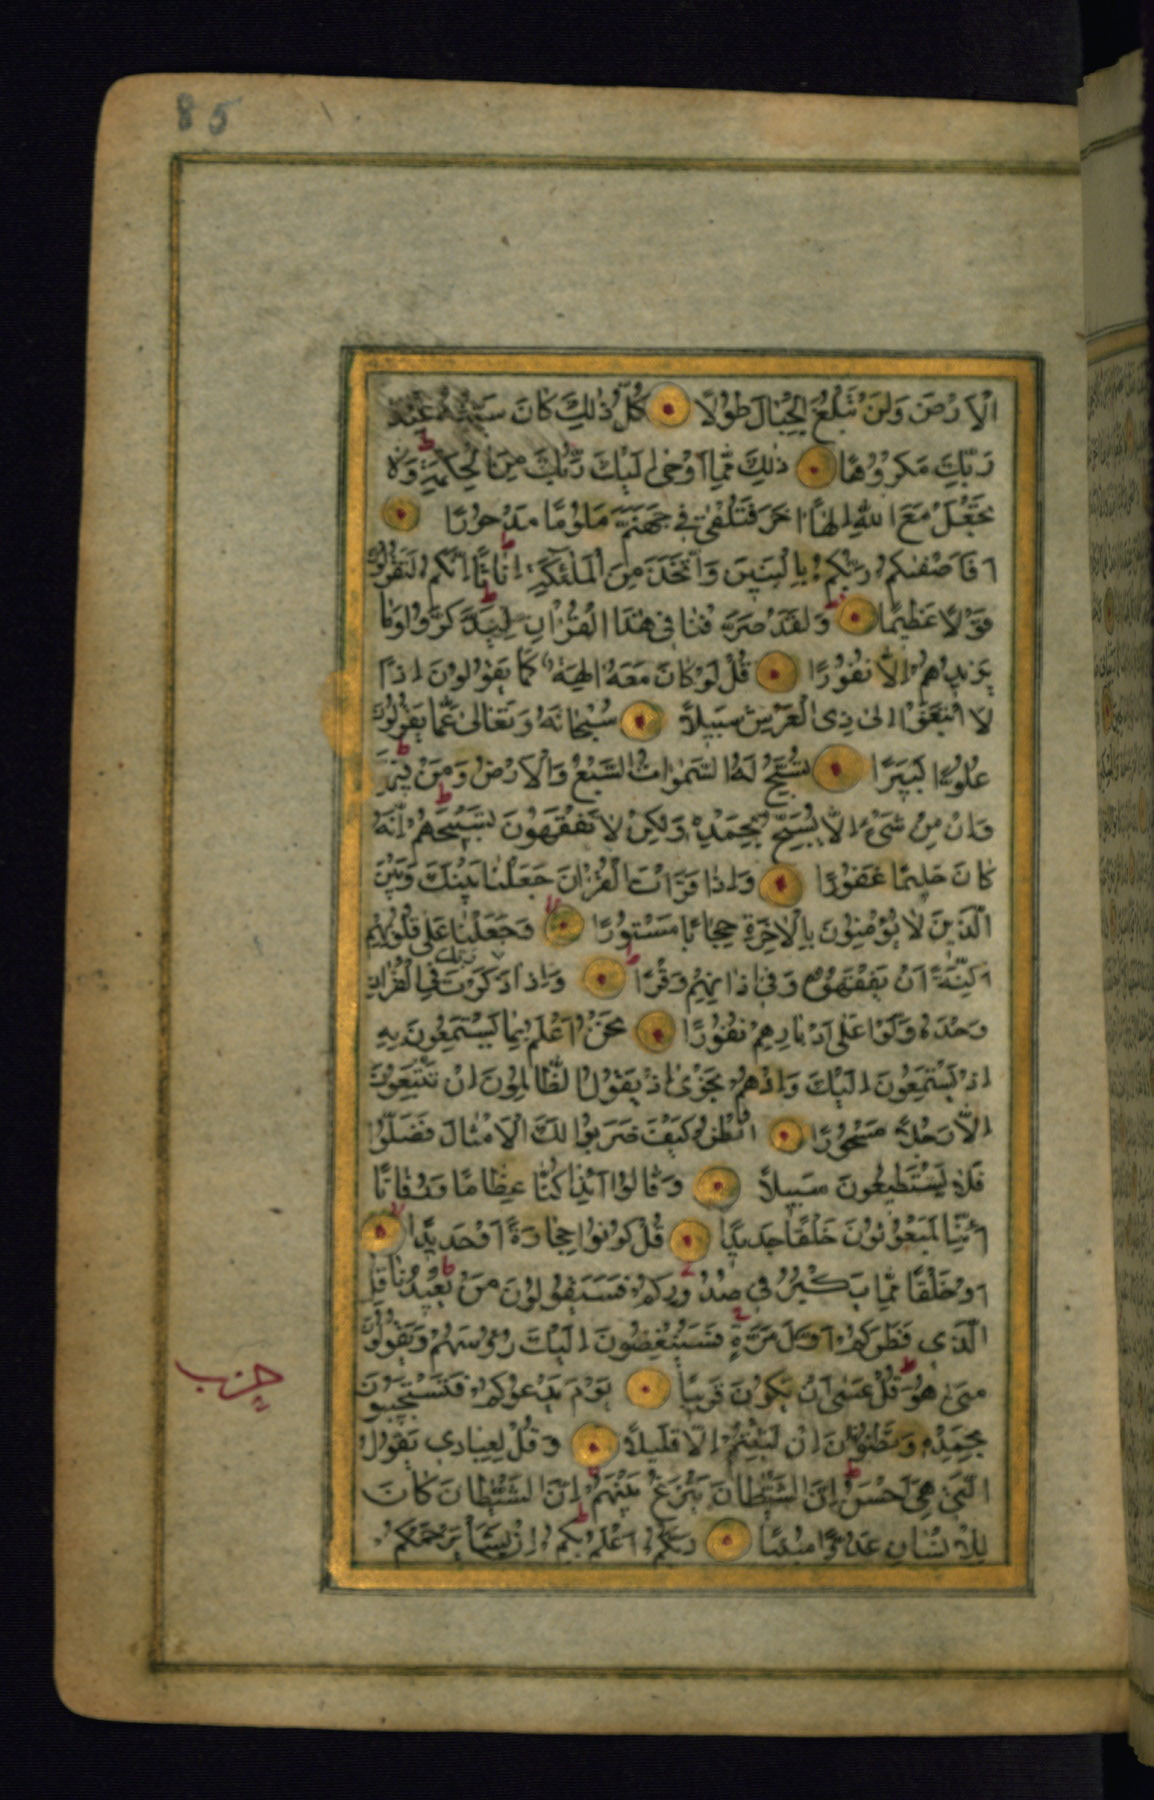 85
الْاَرْضَ وَلَنْ تَبْلُغَ الْجِبَالَ طُولًا كُلُّ ذٰلِكَ كَانَ سَيِّئُهُ عِنْدَ
رَبِّكَ مَكْرُوهًا ذٰلِكَ مِمَّا اَوْحٰى اِلَيْكَ رَبُّكَ مِنَ الْحِكْمَةِ وَلَا
تَجْعَلْ مَعَ اللّٰهِ اِلٰهًا اٰخَرَ فَتُلْقٰى فِي جَهَنَّمَ مَلُومًا مَدْحُورًا
اَفَاَصْفٰيكُمْ رَبُّكُمْ بِالْبَنِينَ وَاتَّخَذَ مِنَ الْمَلٰئِكَةِ اِنَاثًا اِنَّكُمْ لَتَقُولُونَ
قَوْلًا عَظِيمًا وَلَقَدْ صَرَّفْنَا فِي هٰذَا الْقُرْاٰنِ لِيَذَّكَّرُوا وَمَا
يَزِيدُهُمْ اِلَّا نُفُورًا قُلْ لَوْ كَانَ مَعَهُ اٰلِهَةٌ كَمَا يَقُولُونَ اِذًا
لَا ابْتَغَوْا اِلٰى ذِي الْعَرْشِ سَبِيلًا سُبْحَانَهُ وَتَعَالٰى عَمَّا يَقُولُونَ
عُلُوًّا كَبِيرًا تُسَبِّحُ لَهُ السَّمٰوَاتُ السَّبْعُ وَالْاَرْضُ وَمَنْ فِيهِنَّ
وَاِنْ مِنْ شَيْءٍ اِلَّا يُسَبِّحُ بِحَمْدِهِ وَلٰكِنْ لَا تَفْقَهُونَ تَسْبِيحَهُمْ اِنَّهُ
كَانَ حَلِيمًا غَفُورًا وَاِذَا قَرَاْتَ الْقُرْاٰنَ جَعَلْنَا بَيْنَكَ وَبَيْنَ
الَّذِينَ لَا يُؤْمِنُونَ بِالْاٰخِرَةِ حِجَابًا مَسْتُورًا وَجَعَلْنَا عَلٰى قُلُوبِهِمْ
اَكِنَّةً اَنْ يَفْقَهُوهُ وَفِي اٰذَانِهِمْ وَقْرًا وَاِذَا ذَكَرْتَ رَبَّكَ فِي الْقُرْاٰنِ
وَحْدَهُ وَلَّوْا عَلٰى اَدْبَارِهِمْ نُفُورًا نَحْنُ اَعْلَمُ بِمَا يَسْتَمِعُونَ بِهِ
اِذْ يَسْتَمِعُونَ اِلَيْكَ وَاِذْ هُمْ نَجْوٰى اِذْ يَقُولُ الظَّالِمُونَ اِنْ تَتَّبِعُونَ
اِلَّا رَجُلًا مَسْحُورًا اُنْظُرْ كَيْفَ ضَرَبُوا لَكَ الْاَمْثَالَ فَضَلُّوا
فَلَا يَسْتَطِيعُونَ سَبِيلًا وَقَالُوا اَئِذَا كُنَّا عِظَامًا وَرُفَاتًا
اَئِنَّا لَمَبْعُوثُونَ خَلْقًا جَدِيدًا قُلْ كُونُوا حِجَارَةً اَوْ حَدِيدًا
اَوْ خَلْقًا مِمَّا يَكْبُرُ فِي صُدُورِكُمْ فَسَيَقُولُونَ مَنْ يُعِيدُنَا قُلِ
الَّذِي فَطَرَكُمْ اَوَّلَ مَرَّةٍ فَسَيُنْغِضُونَ اِلَيْكَ رُؤُسَهُمْ وَيَقُولُونَ
مَتٰى هُوَ قُلْ عَسٰى اَنْ يَكُونَ قَرِيبًا يَوْمَ يَدْعُوكُمْ فَتَسْتَجِيبُونَ
بِحَمْدِهِ وَتَظُنُّونَ اِنْ لَبِثْتُمْ اِلَّا قَلِيلًا وَقُلْ لِعِبَادِي يَقُولُ
الَّتِي هِيَ اَحْسَنُ اِنَّ الشَّيْطَانَ يَنْزَغُ بَيْنَهُمْ اِنَّ الشَّيْطَانَ كَانَ
لِلْاِنْسَانِ عَدُوًّا مُبِينًا رَبُّكُمْ اَعْلَمُ بِكُمْ اِنْ يَشَاْ يَرْحَمْكُمْ
حزب